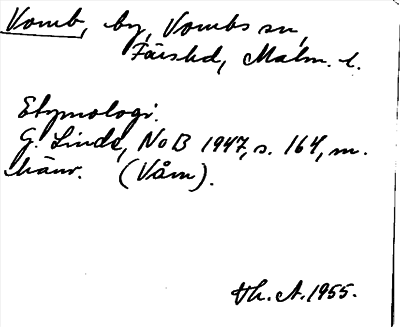 Vomb, by, Vombs sn,
Färs hd, Malm. l.
Etymologi.
G. Linde, NoB 1947, s. 164, m.
hänv. (Våm).
Th. A. 1955.